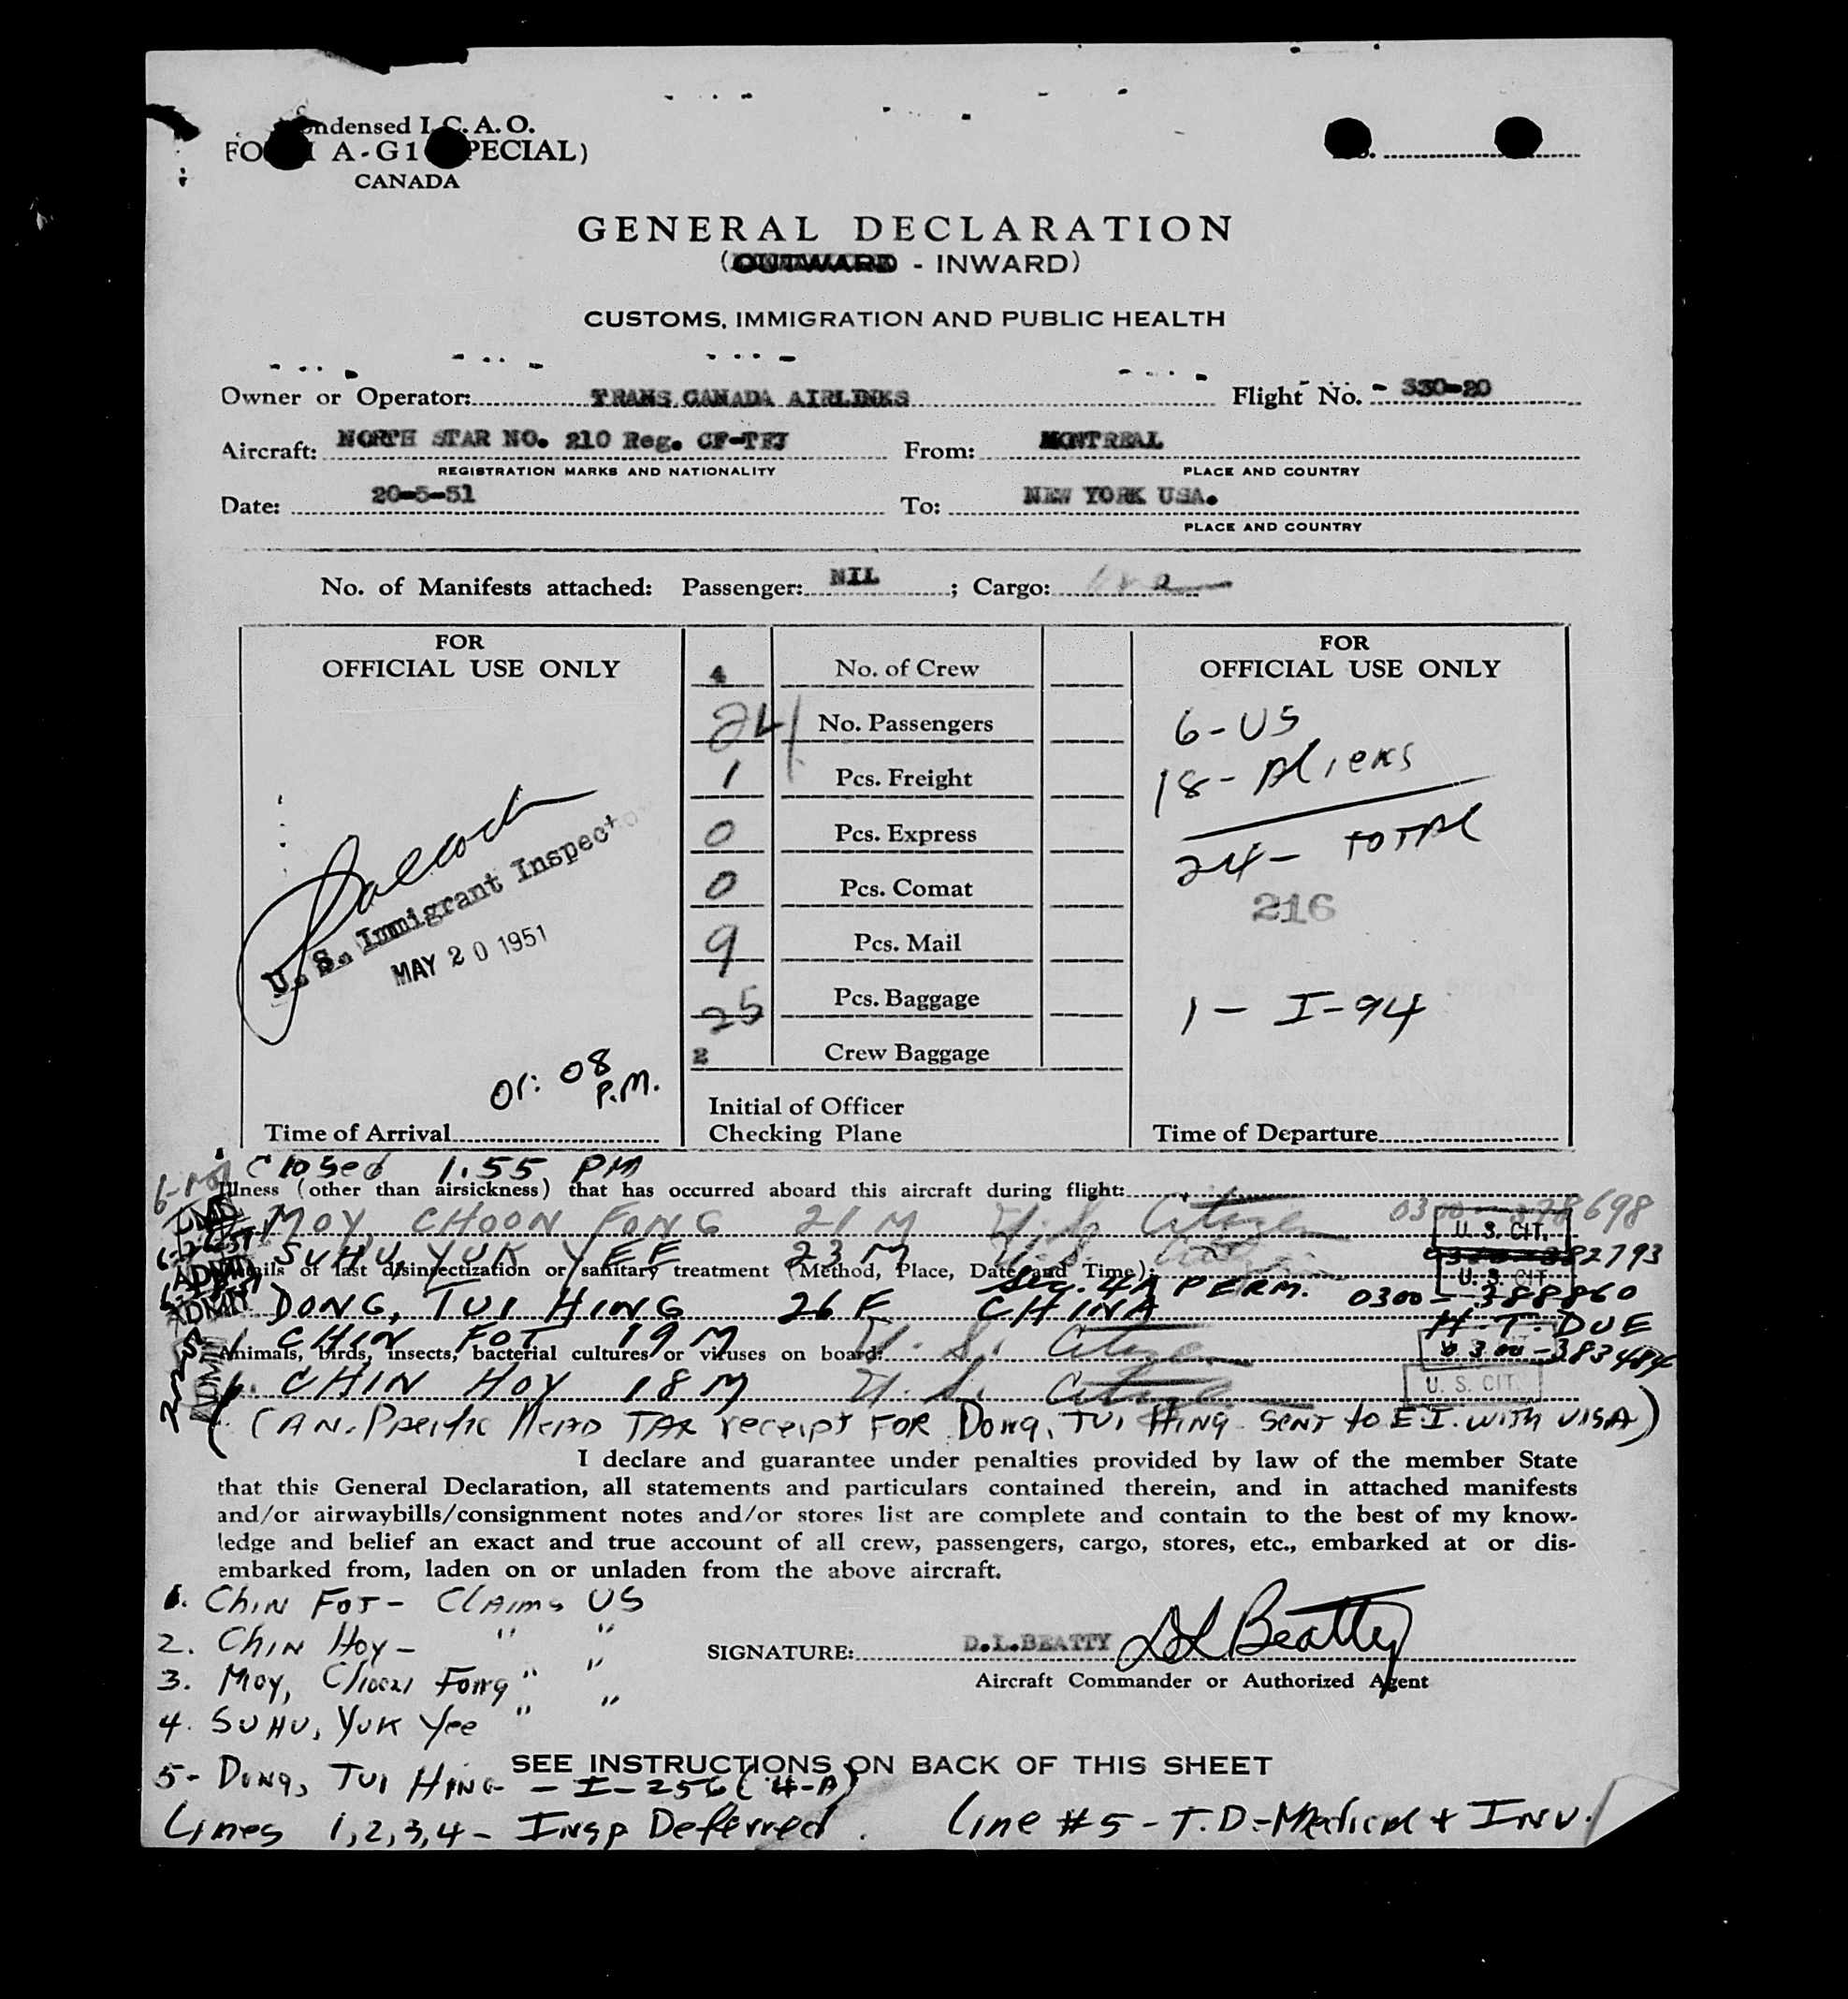 Condensed I.C.A.O.
FORM A-G1 (SPECIAL)
CANADA
GENERAL DECLARATION
(OUTWARD - INWARD)
CUSTOMS, IMMIGRATION AND PUBLIC HEALTH
Owner or Operator: TRANS CANADA AIRLINES Flight No. 330-20
Aircraft: NORTH STAR NO. 210 Reg. CF-TFJ From: MONTREAL
REGISTRATION MARKS AND NATIONALITY PLACE AND COUNTRY
Date: 20-5-51 To: NEW YORK USA.
PLACE AND COUNTRY
No. of Manifests attached: Passenger: NIL ; Cargo:
FOR OFFICIAL USE ONLY
U. S. Immigrant Inspector
MAY 20 1951
01:08 P.M.
Time of Arrival
4 No. of Crew
24 No. Passengers
1 Pcs. Freight
0 Pcs. Express
0 Pcs. Comat
9 Pcs. Mail
25 Pcs. Baggage
2 Crew Baggage
Initial of Officer
Checking Plane
FOR OFFICIAL USE ONLY
6-US
18-Aliens
24- TOTAL
216
1- I-94
Time of Departure
Closed 1.55 PM
Illness (other than airsickness) that has occurred aboard this aircraft during flight:
MOY, CHOON FONG 21 M U.S. Citizen 0300-378698
U. S. CIT.
SUHU, YUK YEE 23 M U.S. 0300-382793
U. S. CIT.
Details of last disinsectization or sanitary treatment (Method, Place, Date and Time):
Sec. 4A PERM. 0300-388860
ADMIT DONG, TUI HING 26 F CHINA H.T. DUE
1. CHIN FOT 19 M U.S. Citizen 0300-383484
Animals, birds, insects, bacterial cultures or viruses on board:
CHIN HOY 18 M U.S. Citizen U. S. CIT.
(CAN. Pacific HEAD TAX receipt FOR Dong, TUI HING SENT to E.I. WITH VISA)
I declare and guarantee under penalties provided by law of the member State
that this General Declaration, all statements and particulars contained therein, and in attached manifests
and/or airwaybills/consignment notes and/or stores list are complete and contain to the best of my know-
ledge and belief an exact and true account of all crew, passengers, cargo, stores, etc., embarked at or dis-
embarked from, laden on or unladen from the above aircraft.
1. Chin Fot - Claims US
2. Chin Hoy - " "
3. Moy, Choon Fong " "
4. SUHU, Yuk Yee " "
SIGNATURE: D.L.BEATTY DL Beatty
Aircraft Commander or Authorized Agent
SEE INSTRUCTIONS ON BACK OF THIS SHEET
5- Dong, TUI HING - I-256 (4-A)
Lines 1,2,3,4 - Insp Deferred. Line #5 - T.D.-Medical + INV.